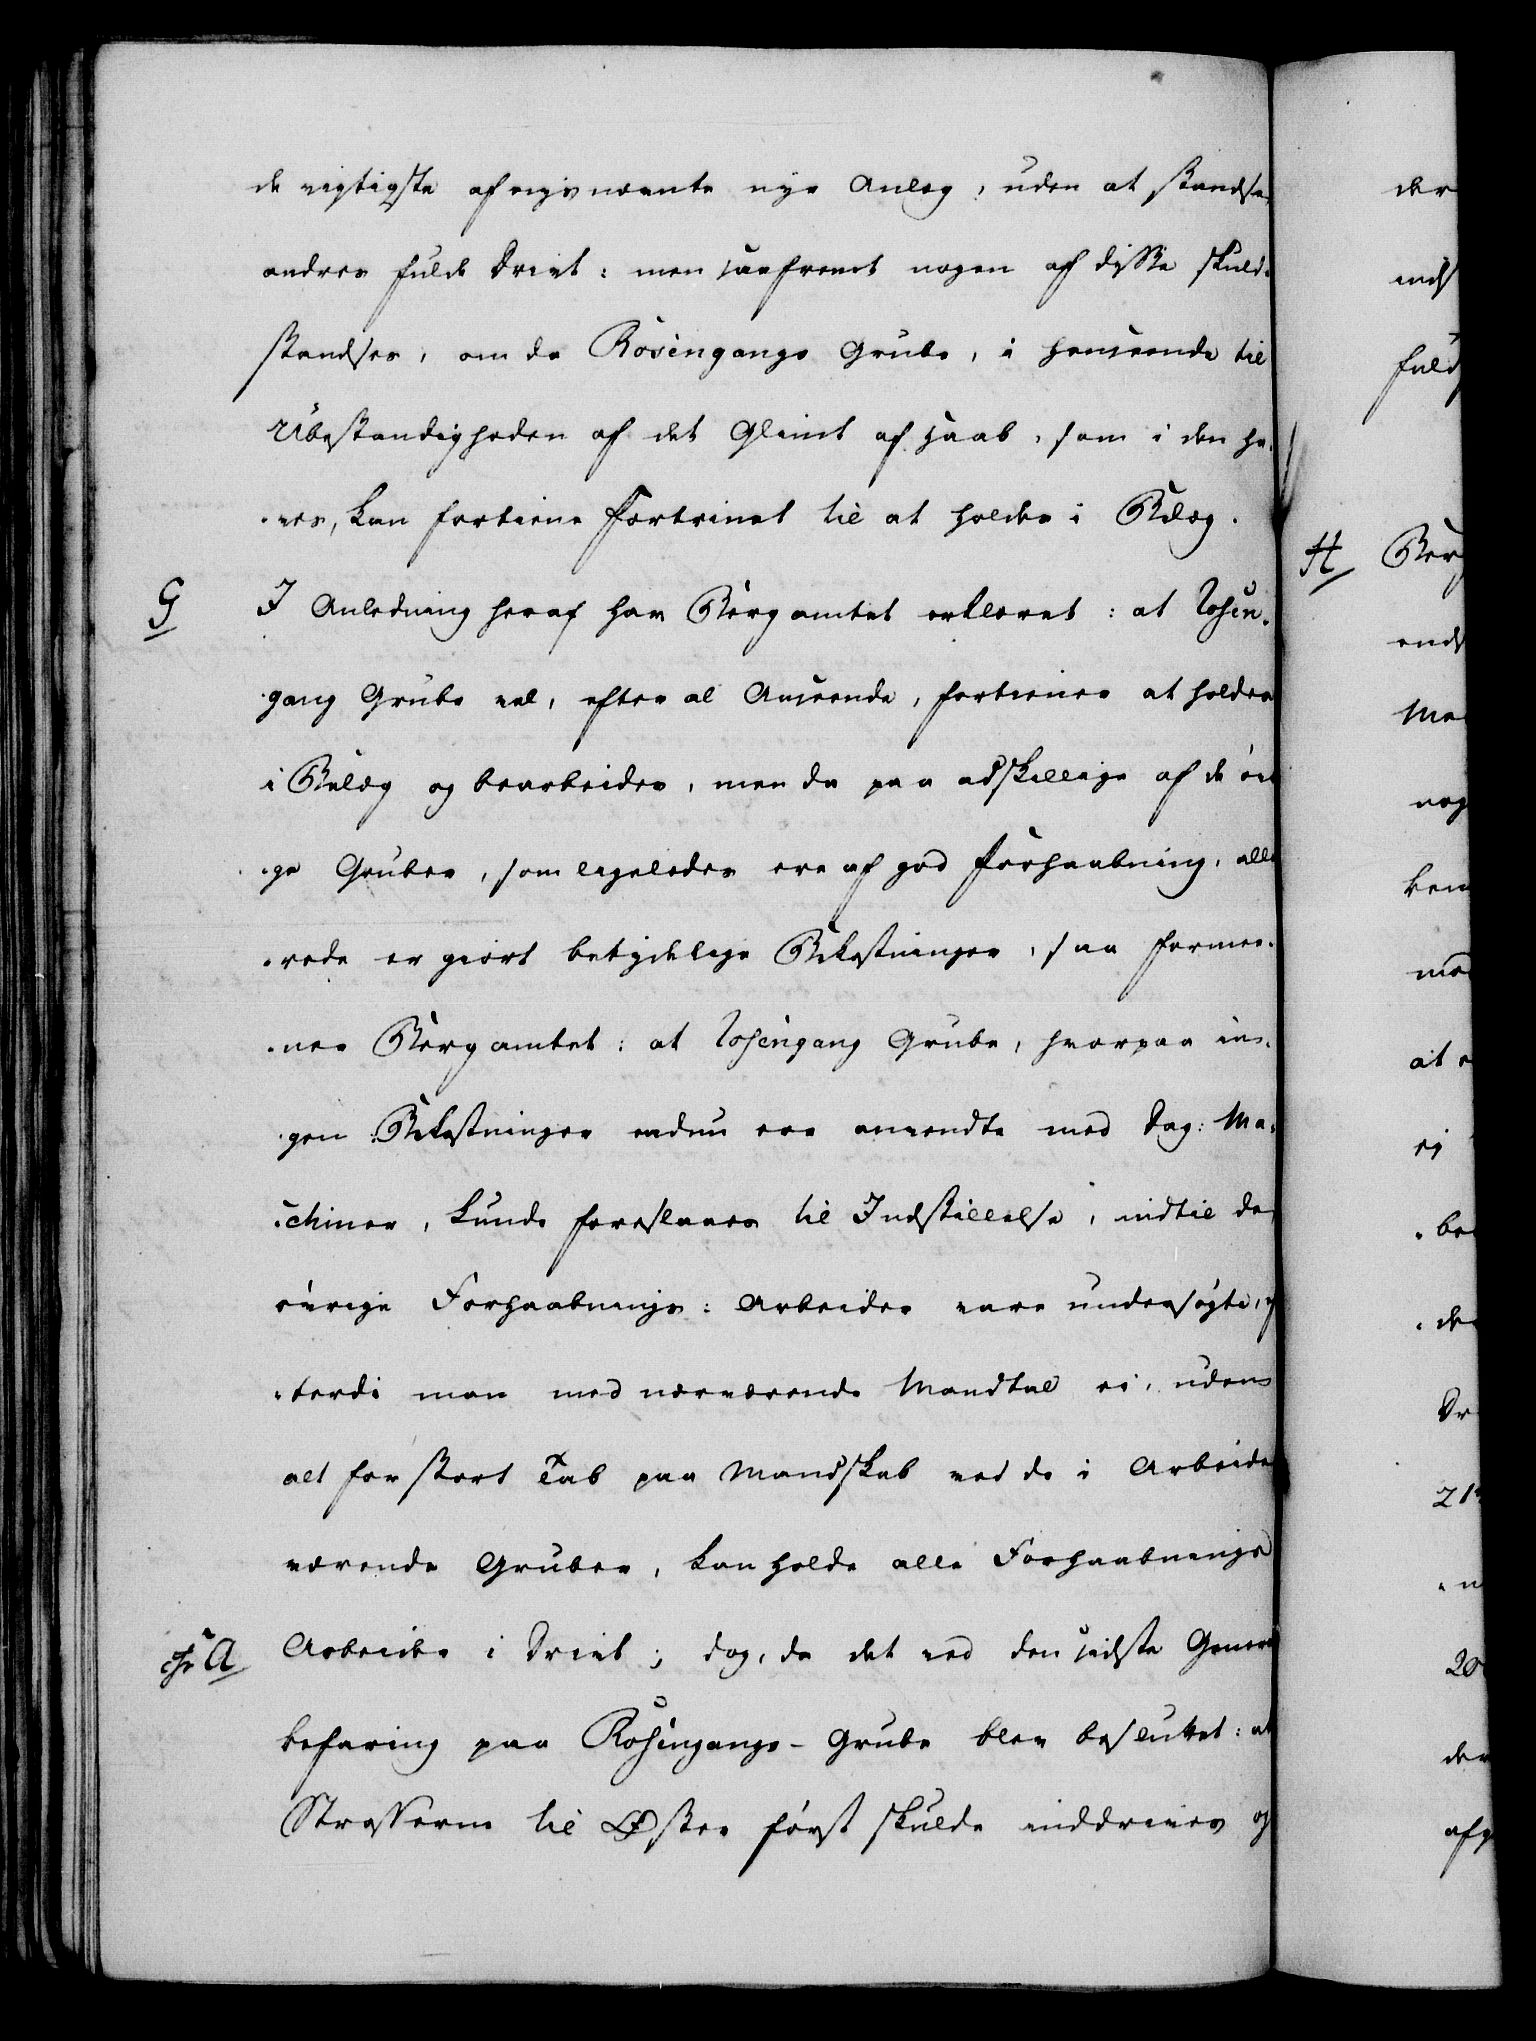 de vigtigste af nysnævnte nye Anlæg, uden at standse
andres fulde Drivt: men saafremt nogen af disse skuld-
standses, om da Rosingangs Grube, i henseende til
Ubestandigheden af det Glimt af Haab, som i den ha-
-ves, kan fortiene Fortrinet til at holdes i Belæg.
G I Anledning heraf har Bergamtet erklæret: at Rosin-
-gang Grube vel, efter al Anseende, fortiener at holdes
i Belæg og bearbeides, men da paa adskillige af de øvri
-ge Gruber, som ligeledes ere af god Forhaabning, alle
-rede er giort betydelige Bekostninger, saa formee-
-ner Bergamtet: at Rosingang Grube, hvorpaa in-
-gen Bekostninger endnu ere anvendte med Dag: Ma-
-chiner, kunde foreslaaes til Indstillelse, indtil de
øvrige Forhaabnings: Arbeider vare undersøgte, ef
-terdi man med nærværende Mandtal ei, uden
alt for stort Tab paa Mandskab ved de i Arbeide
værende Gruber, kan holde alle Forhaabnings
A Arbeider i Drivt; dog, da det ved den sidste General
befaring paa Rosingangs-Grube blev besluttet: at
Strosserne til Øster først skulde inddrives og
der
ends
fuld
H Berg
ends
Ma
nog
ken
med
at
ei
-be
-de
Dr
21
-n
20
der
afg